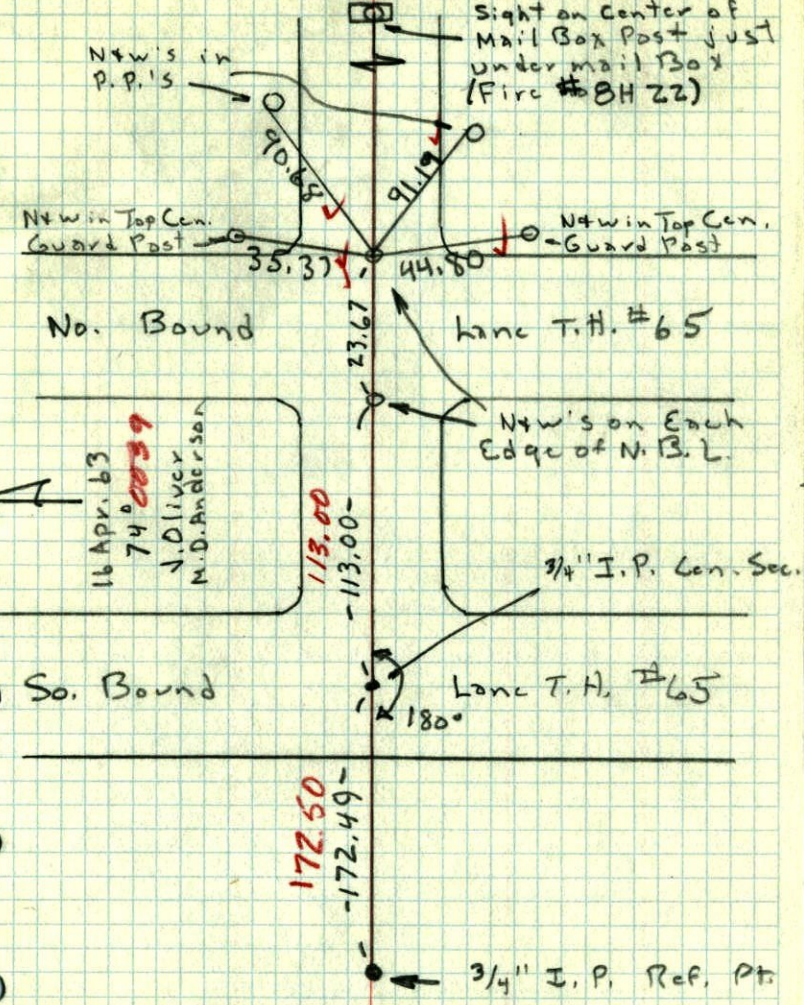 Sight on Center of
Mail Box Post just
under mail Box
(Fire # 8H 22)
N&W's in
P.P.'s
90.68
91.19
N&W in Top Cen.
Guard Post
N&W in Top Cen.
Guard Post
35.37
44.80
No. Bound
Lane T.H. #65
23.67
N&W's on Each
Edge of N.B.L.
16 Apr. 63
74° 0039
J. Oliver
M.D. Anderson
113.00
-113.00-
3/4" I.P. Cen. Sec.
So. Bound
Lane T.H. #65
180°
172.50
-172.49-
3/4" I.P. Ref. Pt.